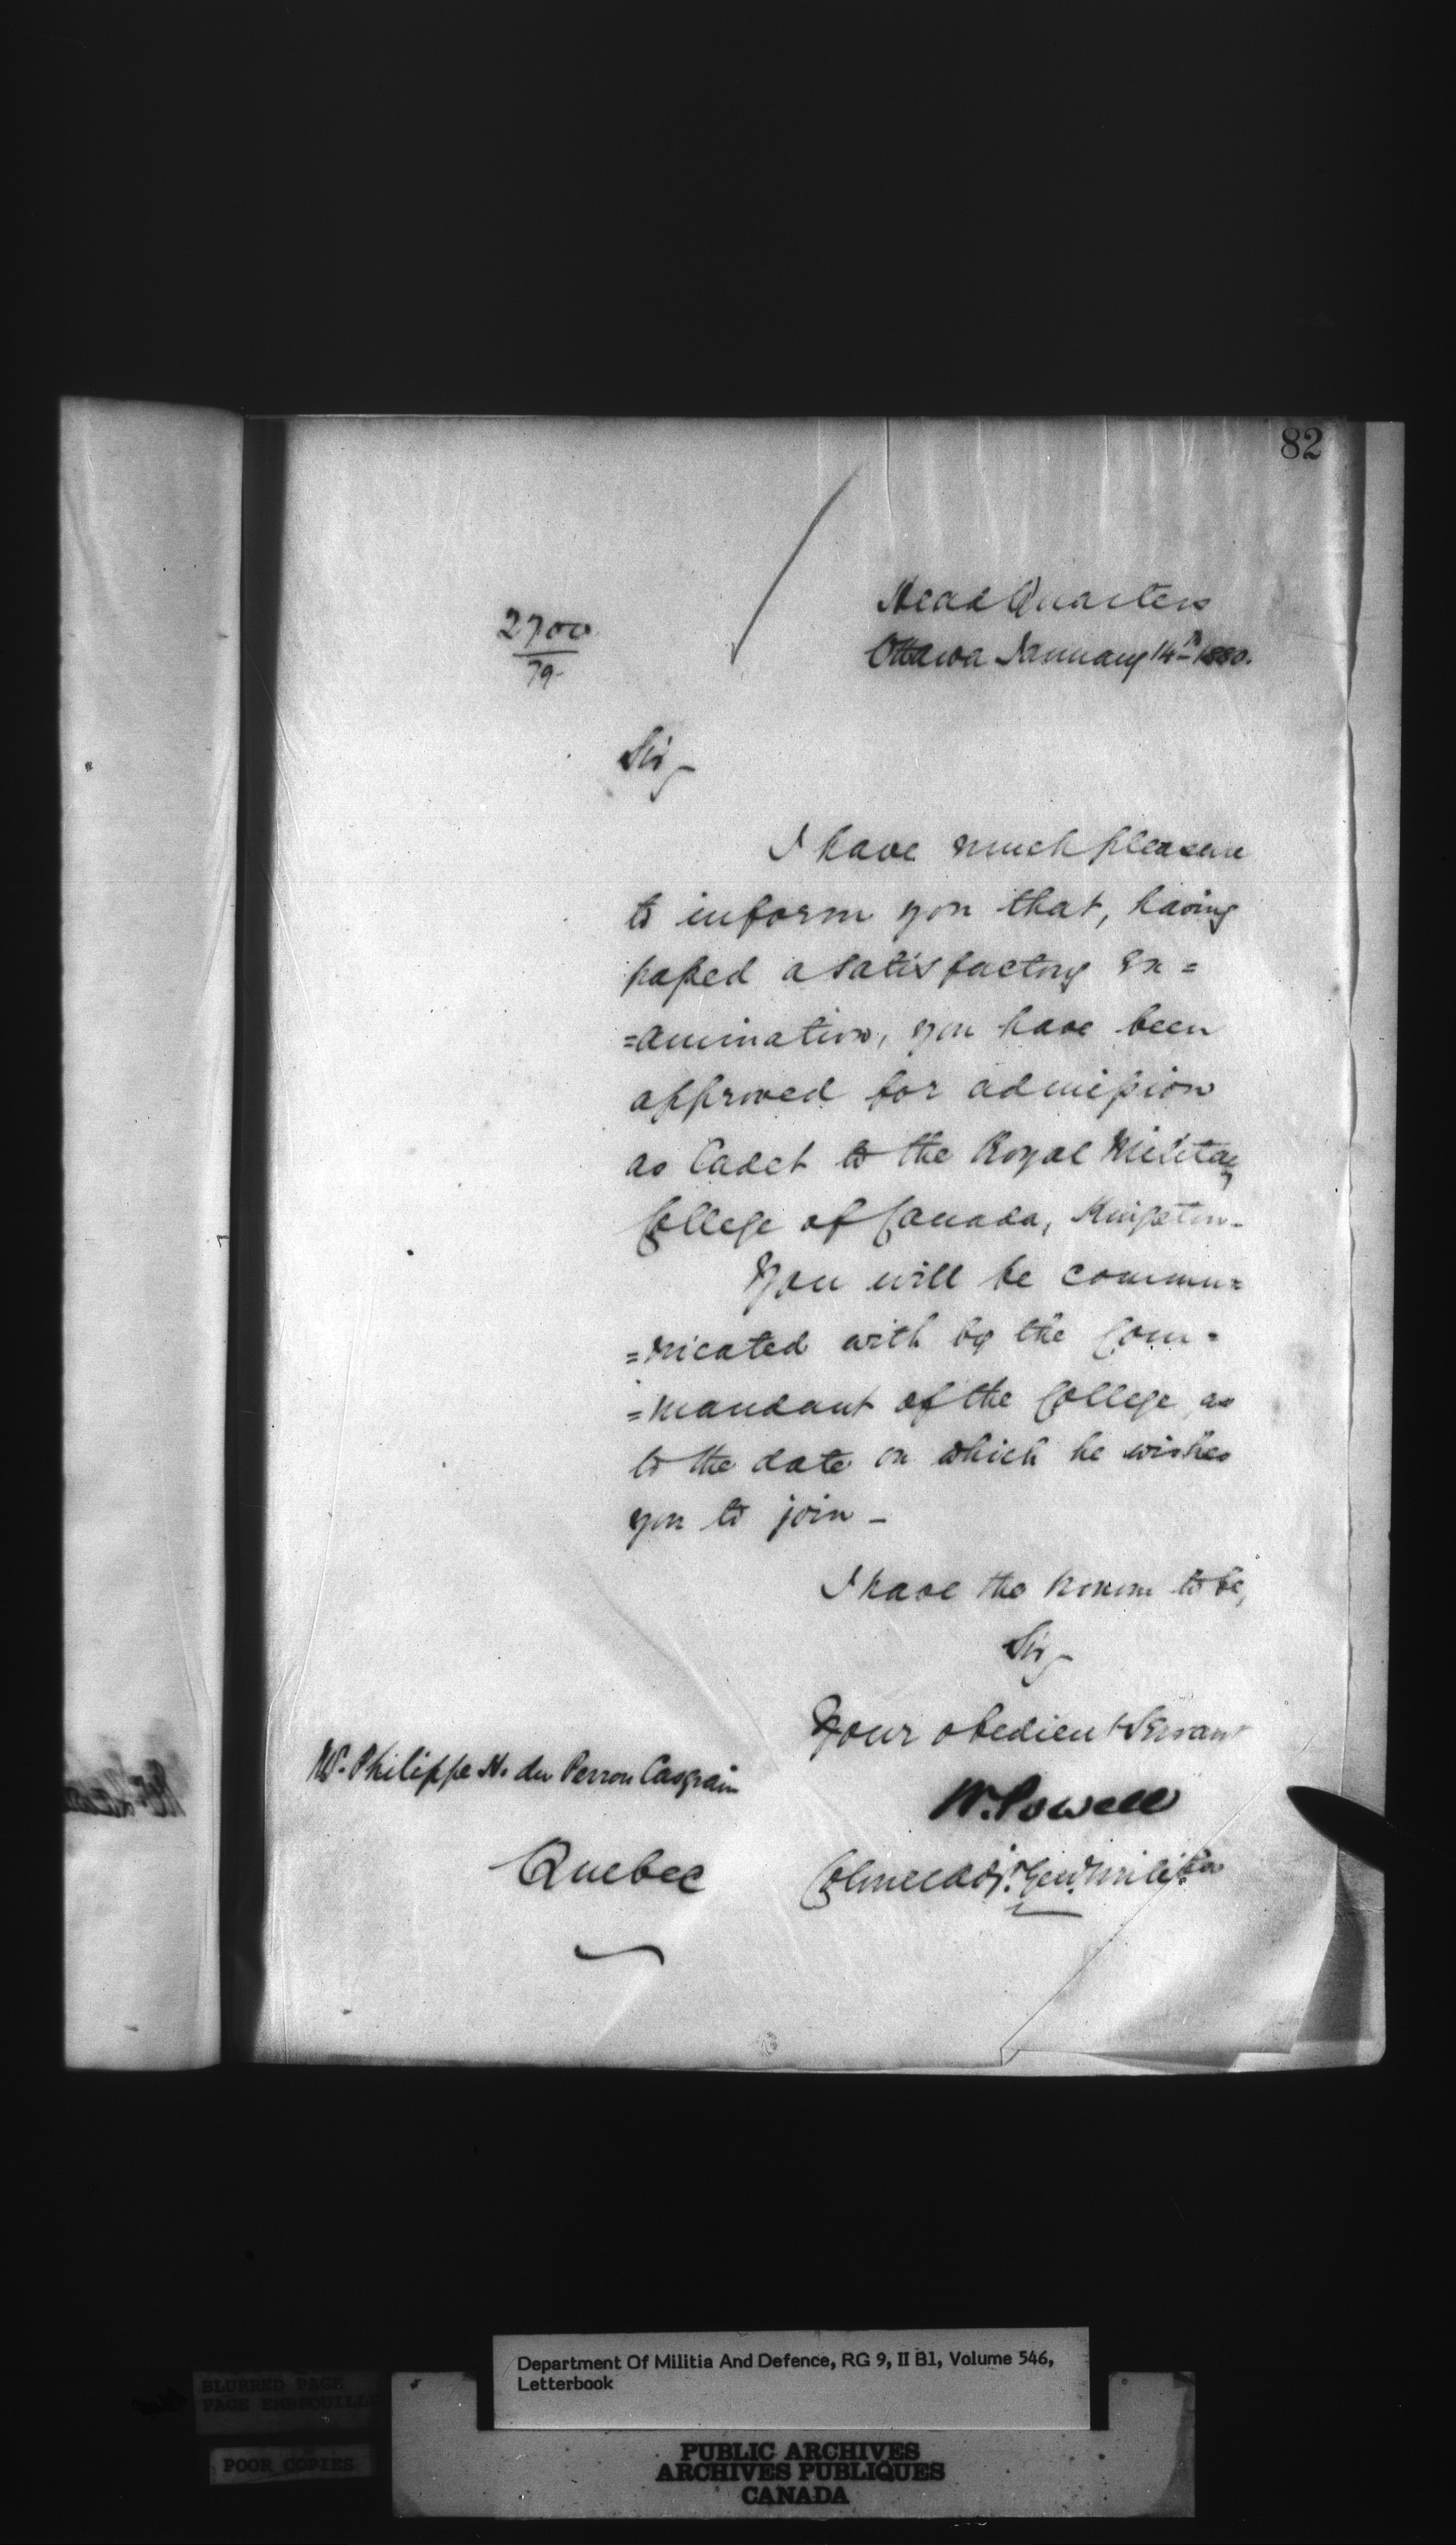 82
Head Quarters
2700
79
Ottawa January 14th 1880.
Sir,
I have much pleasure
to inform you that, having
passed a satisfactory ex=
=amination, you have been
approved for admission
as Cadet to the Royal Military
College of Canada, Kingston_
You will be commu=
=nicated with by the Com=
=mandant of the College as
to the date on which he wishes
you to join _
I have the honour to be,
Sir,
Your obedient Servant
Mr. Philippe H. du Perron Casgrain
W. Powell
Quebec
Colonel Adjt. Genl. Militia
Department Of Militia And Defence, RG 9, II B1, Volume 546,
Letterbook
BLURRED PAGE
PAGE EMBROUILLE
POOR COPIES
PUBLIC ARCHIVES
ARCHIVES PUBLIQUES
CANADA